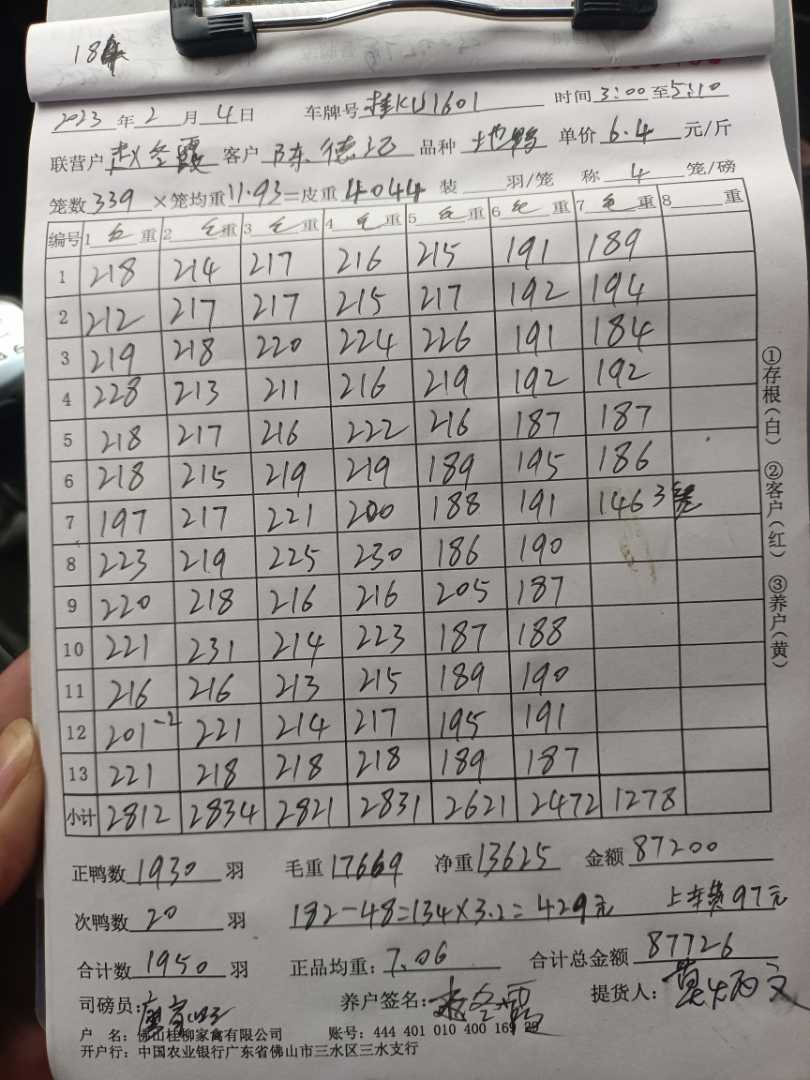 2023 年 2 月 4 日 车牌号 桂KU1601 时间 3:00 至 5:10
联营户 赵冬霞 客户 陈德记 品种 土鸭 单价 6.4 元/斤
笼数 339 ×笼均重 11.93 =皮重 4044 装 羽/笼 称 4 笼/磅
编号 1 毛 重 2 毛 重 3 毛 重 4 毛 重 5 毛 重 6 毛 重 7 毛 重 8 重
1 218 214 217 216 215 191 189
2 212 217 217 215 217 192 194
3 219 218 220 224 226 191 184
4 228 213 211 216 219 192 192
5 218 217 216 222 216 187 187
6 218 215 219 219 189 195 186
7 197 217 221 200 188 191 146 3笼
8 223 219 225 230 186 190
9 220 218 216 216 205 187
10 221 231 214 223 187 188
11 216 216 213 215 189 190
12 201-2 221 214 217 195 191
13 221 218 218 218 189 187
小计 2812 2834 2821 2831 2621 2472 1278
①存根(白) ②客户(红) ③养户(黄)
正鸭数 1930 羽 毛重 17669 净重 13625 金额 87200
次鸭数 20 羽 182-48=134×3.2=429元 上车费97元
合计数 1950 羽 正品均重: 7.06 合计总金额 87726
司磅员: 养户签名: 赵冬霞 提货人:
户 名: 佛山桂柳家禽有限公司 账号: 444 401 010 400 169
开户行: 中国农业银行广东省佛山市三水区三水支行